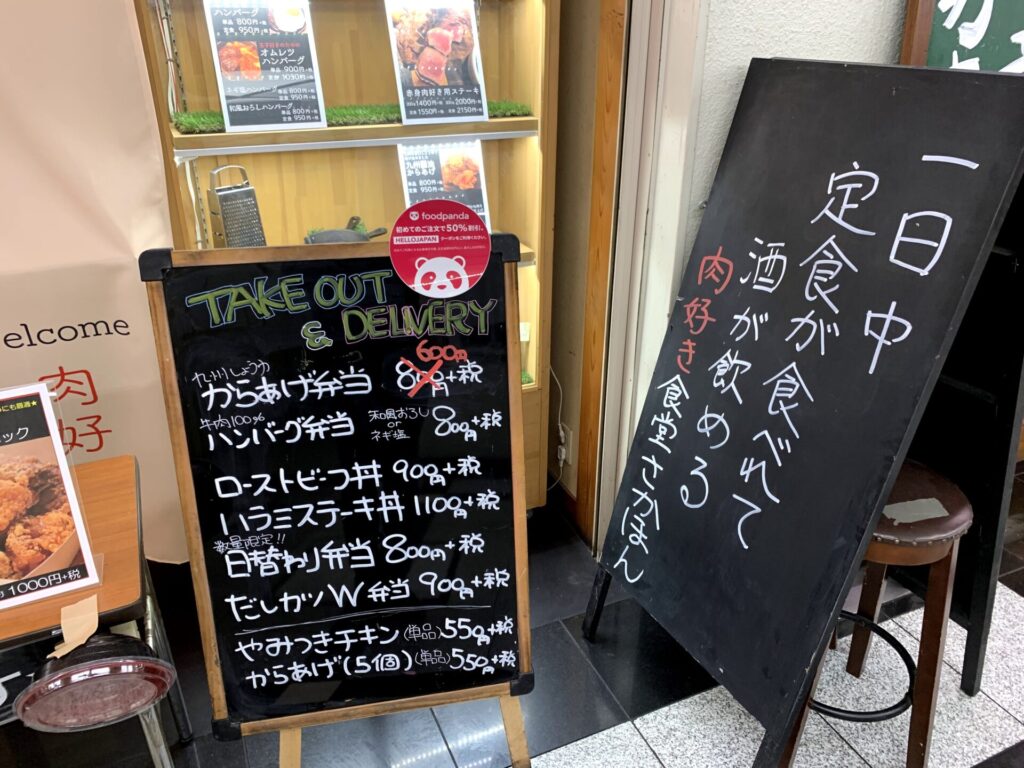 ハンバーグ
単品 800円+税
定食 950円+税
オムレツ
ハンバーグ
単品 900円+税
ネギ塩ハンバーグ
和風おろしハンバーグ
単品 800円+税
定食 950円+税
赤身肉好き用ステーキ
定食1550円+税
定食2150円+税
九州醤油
からあげ
単品 800円+税
定食 950円+税
foodpanda
初めてのご注文で50%割引。
HELLOJAPAN
クーポンをご利用ください。
TAKE OUT
& DELIVERY
九州しょうゆ
からあげ弁当 800円 600円+税
牛肉100%
ハンバーグ弁当 和風おろし or ネギ塩 800円+税
ローストビーフ丼 900円+税
ハラミステーキ丼 1100円+税
数量限定!!
日替わり弁当 800円+税
だしカツW弁当 900円+税
やみつきチキン(単品)550円+税
からあげ(5個)(単品)550円+税
一日中
定食が食べれて
酒が飲める
肉好き食堂さかほん
elcome
肉
好
にも最適★
ック
1000円+税